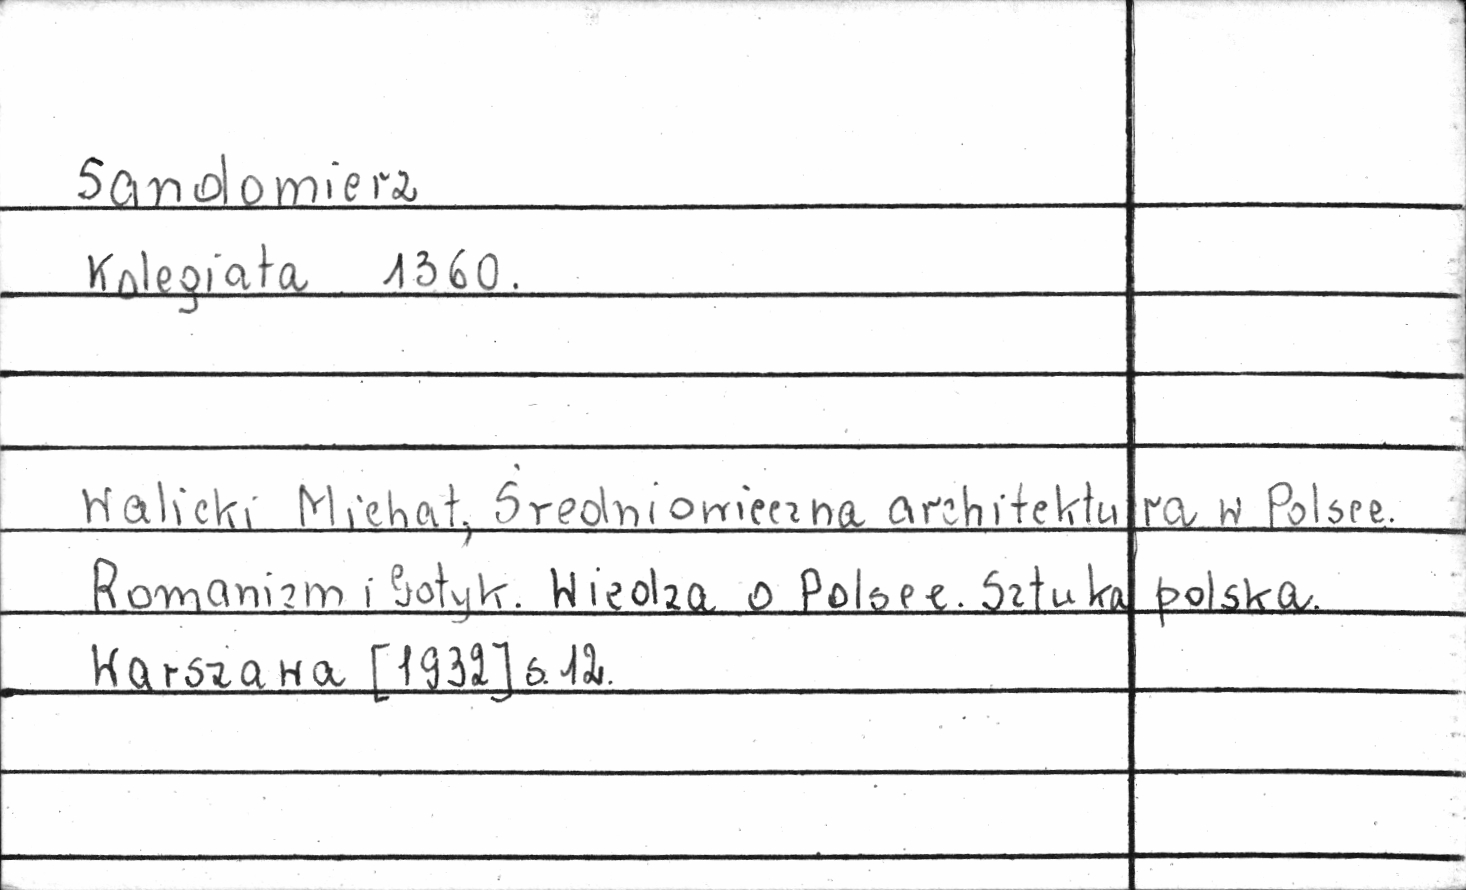 Sandomierz
Kolegiata 1360.
Walicki Michał, Średniowieczna architektura w Polsce.
Romanizm i Gotyk. Wiedza o Polsce. Sztuka polska.
Warszawa [1932] s. 12.